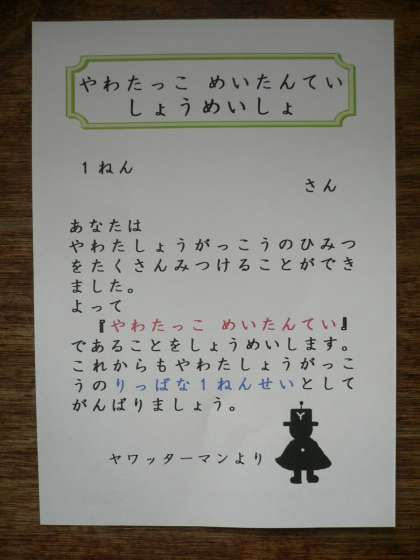 やわたっこ めいたんてい
しょうめいしょ
1ねん
さん
あなたは
やわたしょうがっこうのひみつ
をたくさんみつけることができ
ました。
よって
『やわたっこ めいたんてい』
であることをしょうめいします。
これからもやわたしょうがっこ
うのりっぱな1ねんせいとして
がんばりましょう。
Y
ヤワッターマンより